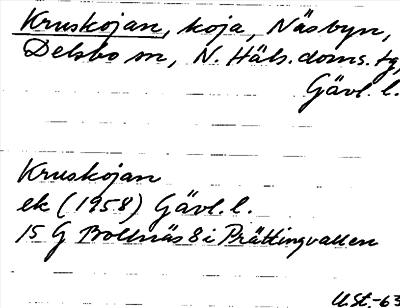 Kruskojan, koja, Näsbyn,
Delsbo sn, N. Häls. doms. tg,
Gävl. l.
Kruskojan
ek (1958) Gävl. l.
15 G Bollnäs 8 i Prättingvallen
U.St.-63